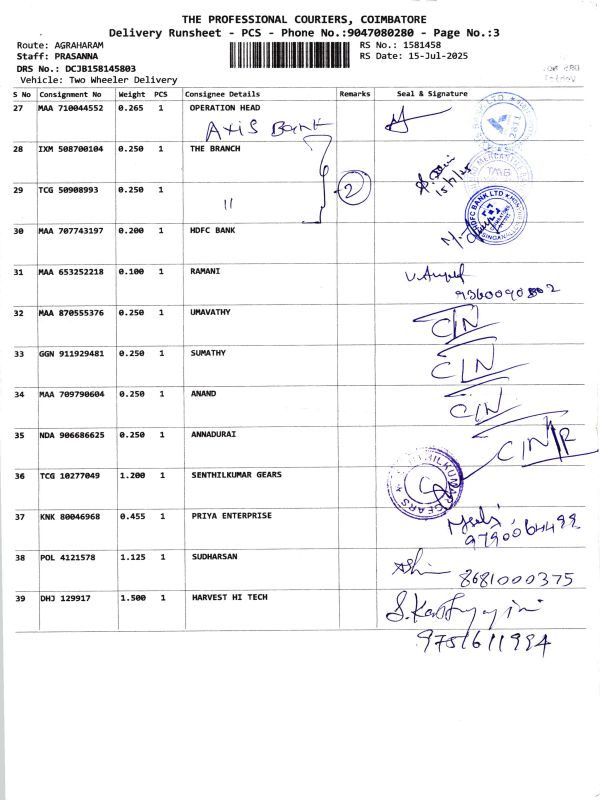 THE PROFESSIONAL COURIERS, COIMBATORE
Delivery Runsheet - PCS - Phone No.:9047080280 - Page No.:3
Route: AGRAHARAM
RS No.: 1581458
Staff: PRASANNA
RS Date: 15-Jul-2025
DRS No.: DCJB158145803
Vehicle: Two Wheeler Delivery
S No Consignment No Weight PCS Consignee Details Remarks Seal & Signature
27 MAA 710044552 0.265 1 OPERATION HEAD
AXIS BANK
28 IXM 508700104 0.250 1 THE BRANCH
15/7/25
29 TCG 50908993 0.250 1
11 2
HDFC BANK LTD
30 MAA 707743197 0.200 1 HDFC BANK
31 MAA 653252218 0.100 1 RAMANI
32 MAA 870555376 0.250 1 UMAVATHY C/N
33 GGN 911929481 0.250 1 SUMATHY C/N
34 MAA 709790604 0.250 1 ANAND C/N
35 NDA 906686625 0.250 1 ANNADURAI C/N/R
36 TCG 10277049 1.200 1 SENTHILKUMAR GEARS
37 KNK 80046968 0.455 1 PRIYA ENTERPRISE
9790064499
38 POL 4121578 1.125 1 SUDHARSAN
8681000375
39 DHJ 129917 1.500 1 HARVEST HI TECH
9751611994